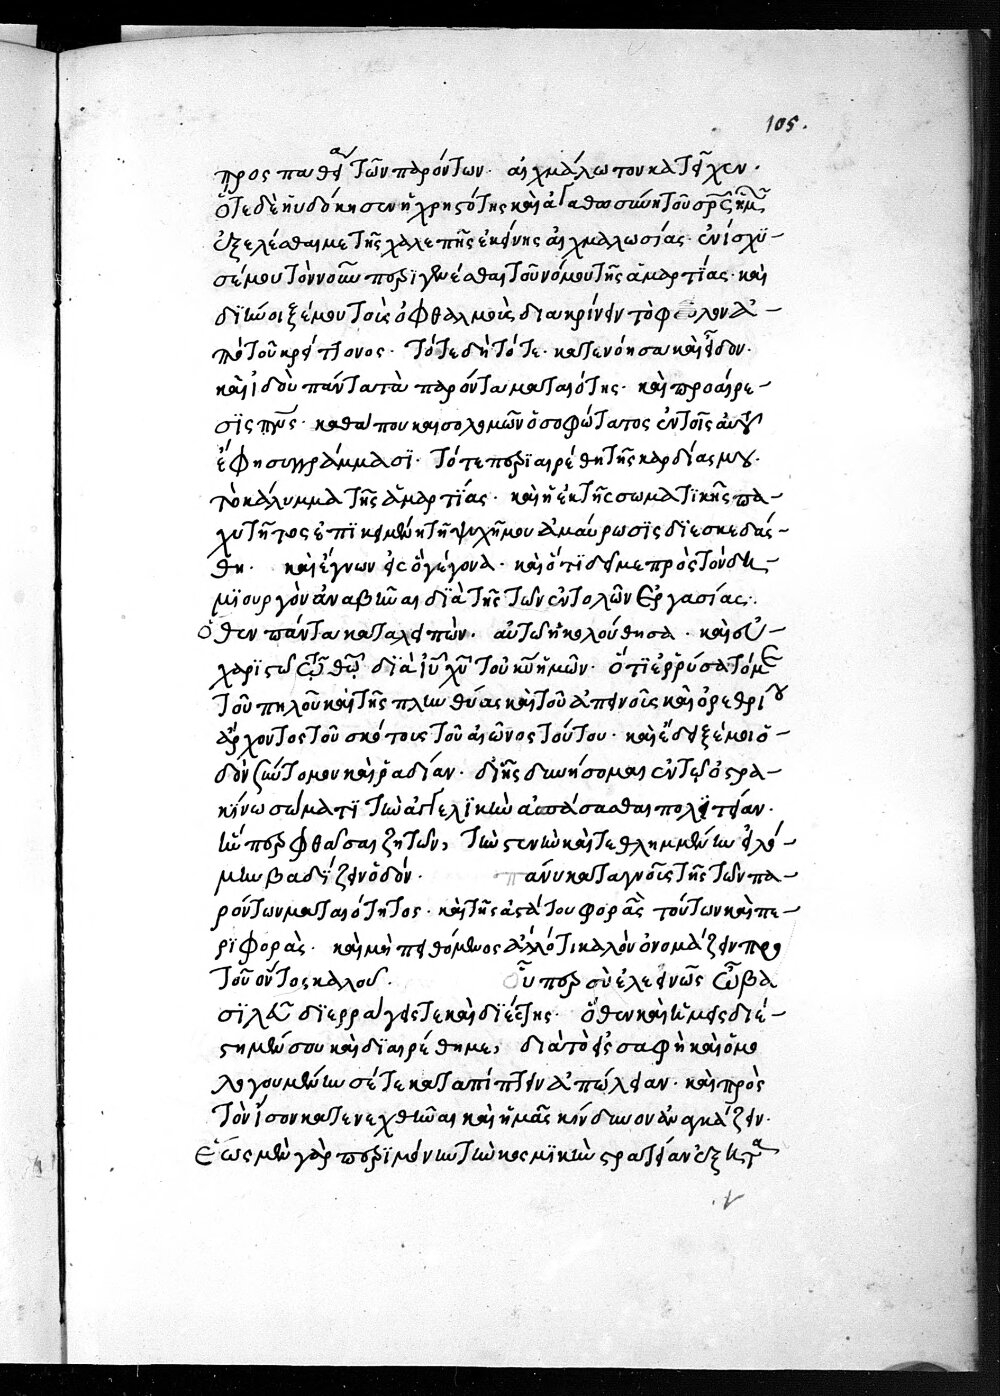 105.
προσπαθεία τῶν παρόντων· αἰχμάλωτον κατεῖχεν·
ὅτε δὲ ηὐδόκησεν ἡ χρηστότης καὶ ἀγαθωσύνη τοῦ σρς ἡμῶν
ἐξελέσθαι με τῆς χαλεπῆς ἐκείνης αἰχμαλωσίας· ἐνίσχυ-
σέ μου τὸν νοῦν περιγενέσθαι τοῦ νόμου τῆς ἁμαρτίας· καὶ
διήνοιξέ μου τοὺς ὀφθαλμοὺς διακρίνειν τὸ φαῦλον ἀ-
πὸ τοῦ κρείττονος· τότε δὴ τότε· κατενόησα καὶ εἶδον·
καὶ ἰδοὺ πάντα τὰ παρόντα ματαιότης· καὶ προαίρε-
σις πνς· καθά που καὶ σολομῶν ὁ σοφώτατος ἐν τοῖς αὐτοῦ
ἔφη συγγράμμασι· τότε περιαιρέθη τῆς καρδίας μου·
τὸ κάλυμμα τῆς ἁμαρτίας· καὶ ἡ ἐκ τῆς σωματικῆς πα-
χύτητος ἐπικειμένη τῇ ψυχῇ μου ἀμαύρωσις διεσκεδάσ-
θη· καὶ ἔγνων εἰς ὃ γέγονα· καὶ ὅτι δεῖ με πρὸς τὸν δη-
μιουργὸν ἀναβῆναι διὰ τῆς τῶν ἐντολῶν Ἐργασίας·
ὅθεν πάντα καταλιπὼν· αὐτῷ ἠκολούθησα· καὶ εὐ-
χαριστῶ τῷ θῷ διὰ ιυ χυ τοῦ κυ ἡμῶν· ὅτι ἐρρύσατό με
τοῦ πηλοῦ καὶ τῆς πλινθείας καὶ τοῦ ἀπηνοῦς καὶ ὀλεθρίου
ἄρχοντος τοῦ σκότους τοῦ αἰῶνος τούτου· καὶ ἔδειξέ μοι ὁ-
δὸν σύντομον καὶ ῥαδίαν· δι' ἧς δυνήσομαι ἐν τῷ ὀστρα-
κίνῳ σώματι τὴν ἀγγελικὴν ἀσπάσασθαι πολιτείαν·
ἣν περ φθάσαι ζητῶν, τὴν στενὴν καὶ τεθλιμμένην εἱλό-
μην βαδίζειν ὁδόν. πάνυ καταγνοὺς τῆς τῶν πα-
ρόντων ματαιότητος· καὶ τῆς ἀστάτου φορᾶς τούτων καὶ πε-
ριφορᾶς· καὶ μὴ πειθόμενος ἄλλό τι καλὸν ὀνομάζειν πρὸ
τοῦ ὄντος καλοῦ. οὗ περ σὺ ἐλεεινῶς ὦ βα
σιλεῦ διερράγης τε καὶ διέστης· ὅθεν καὶ ἡμεῖς διέ-
στημέν σου καὶ διαιρέθημεν, διὰ τὸ εἰς σαφῆ καὶ ὁμο
λογουμένην σέ τε καταπίπτειν ἀπώλειαν· καὶ πρὸς
τὸν ἴσον κατενεχθῆναι καὶ ἡμᾶς κίνδυνον ἀναγκάζειν·
Ἕως μὲν γὰρ περὶ μόνην τὴν κοσμικὴν στρατείαν ἐξητα